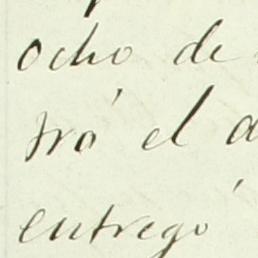 ocho de
tró el
entregó